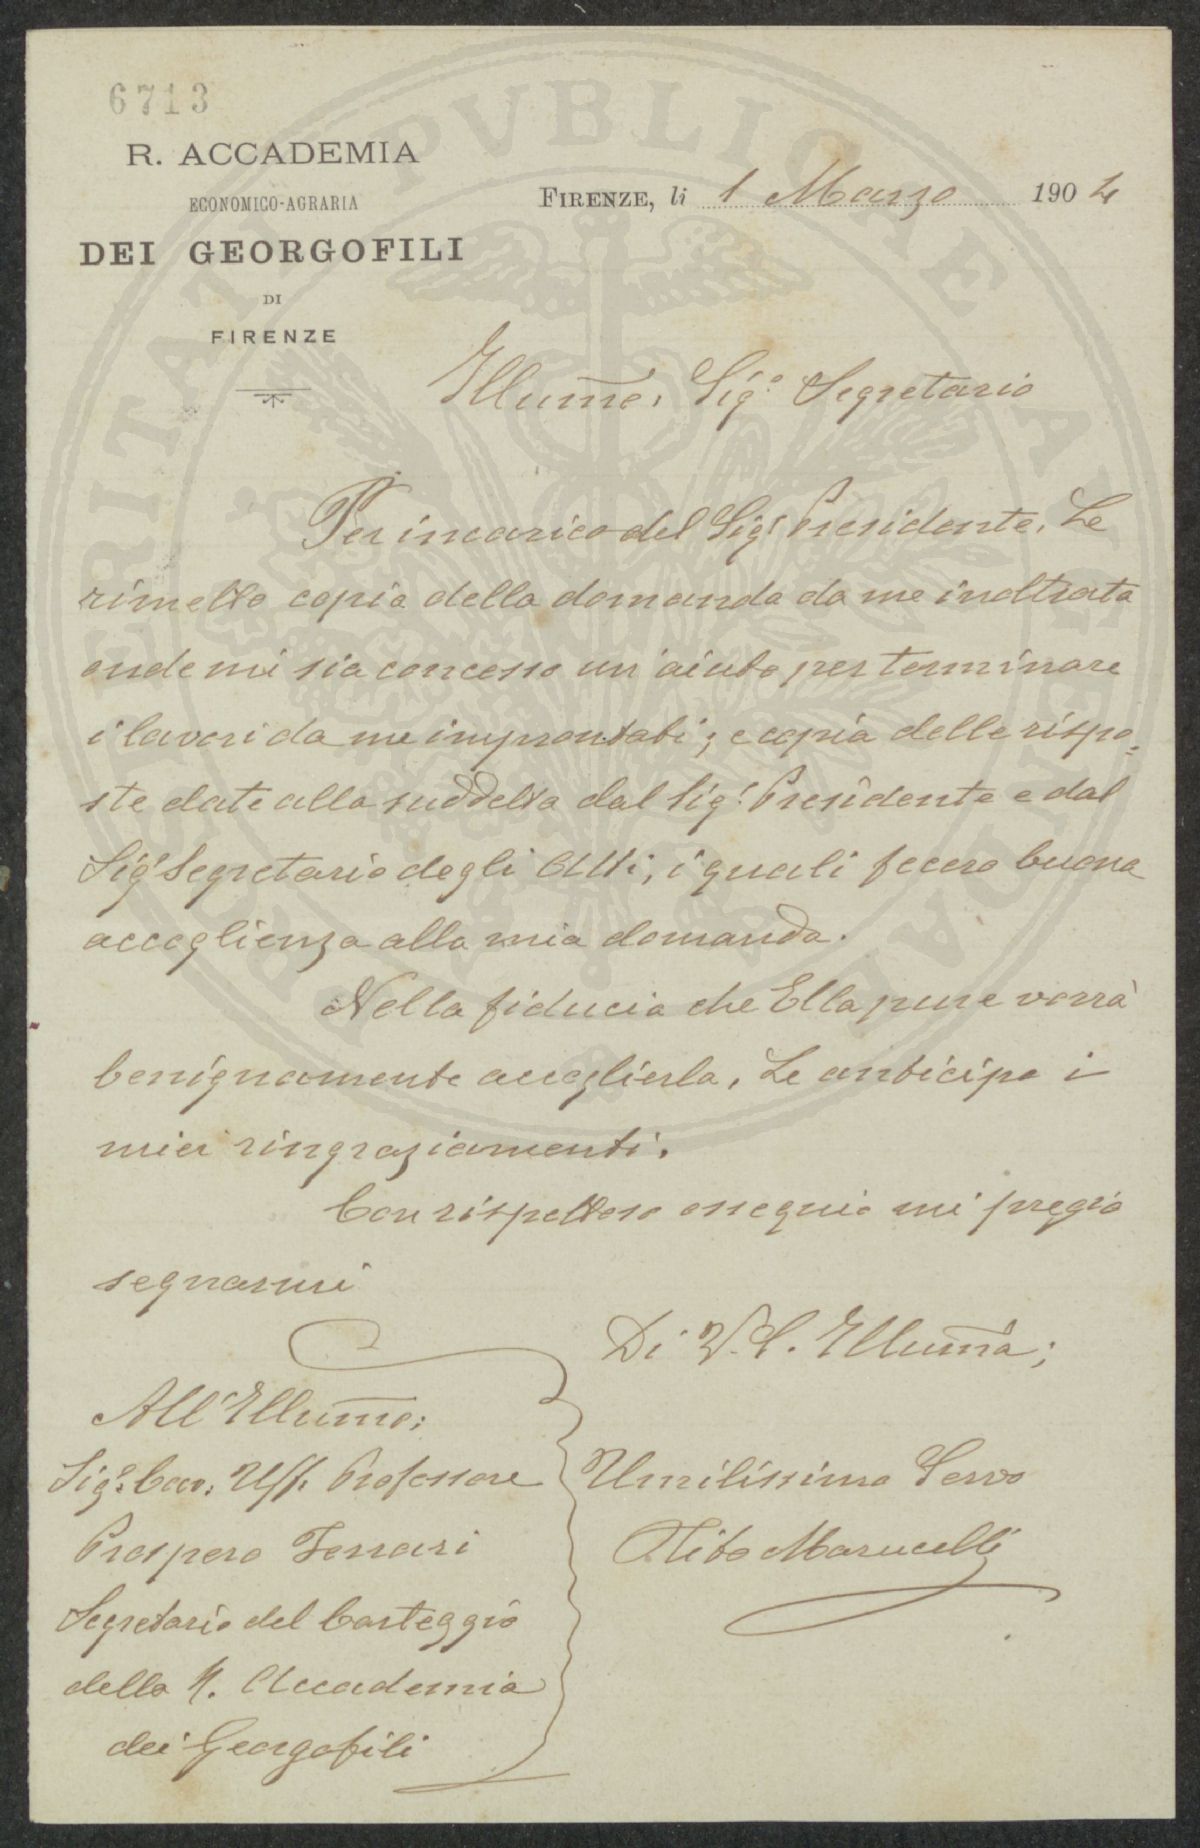 6713
R. ACCADEMIA
ECONOMICO-AGRARIA
DEI GEORGOFILI
DI
FIRENZE
FIRENZE, li 1 Marzo 1904
Illumo. Sigr Segretario
Per incarico del Sigr Presidente, Le
rimetto copia della domanda da me inoltrata
onde mi sia concesso un'aiuto per terminare
i lavori da me improntati; e copia delle rispo=
ste date alla suddetta dal Sigr Presidente e dal
Sigr Segretario degli Atti, i quali fecero buona
accoglienza alla mia domanda.
Nella fiducia che Ella pure vorrà
benignamente accoglierla, Le anticipo i
miei ringraziamenti.
Con rispettoso ossequio mi pregio
segnarmi
Di V.S. Illuma;
Umilissimo Servo
Tito Marucelli
All'Illumo;
Sigr Cav. Uff. Professore
Prospero Ferrari
Segretario del Carteggio
della R. Accademia
dei Georgofili
PROSPERITATI PUBLICAE AUGENDAE